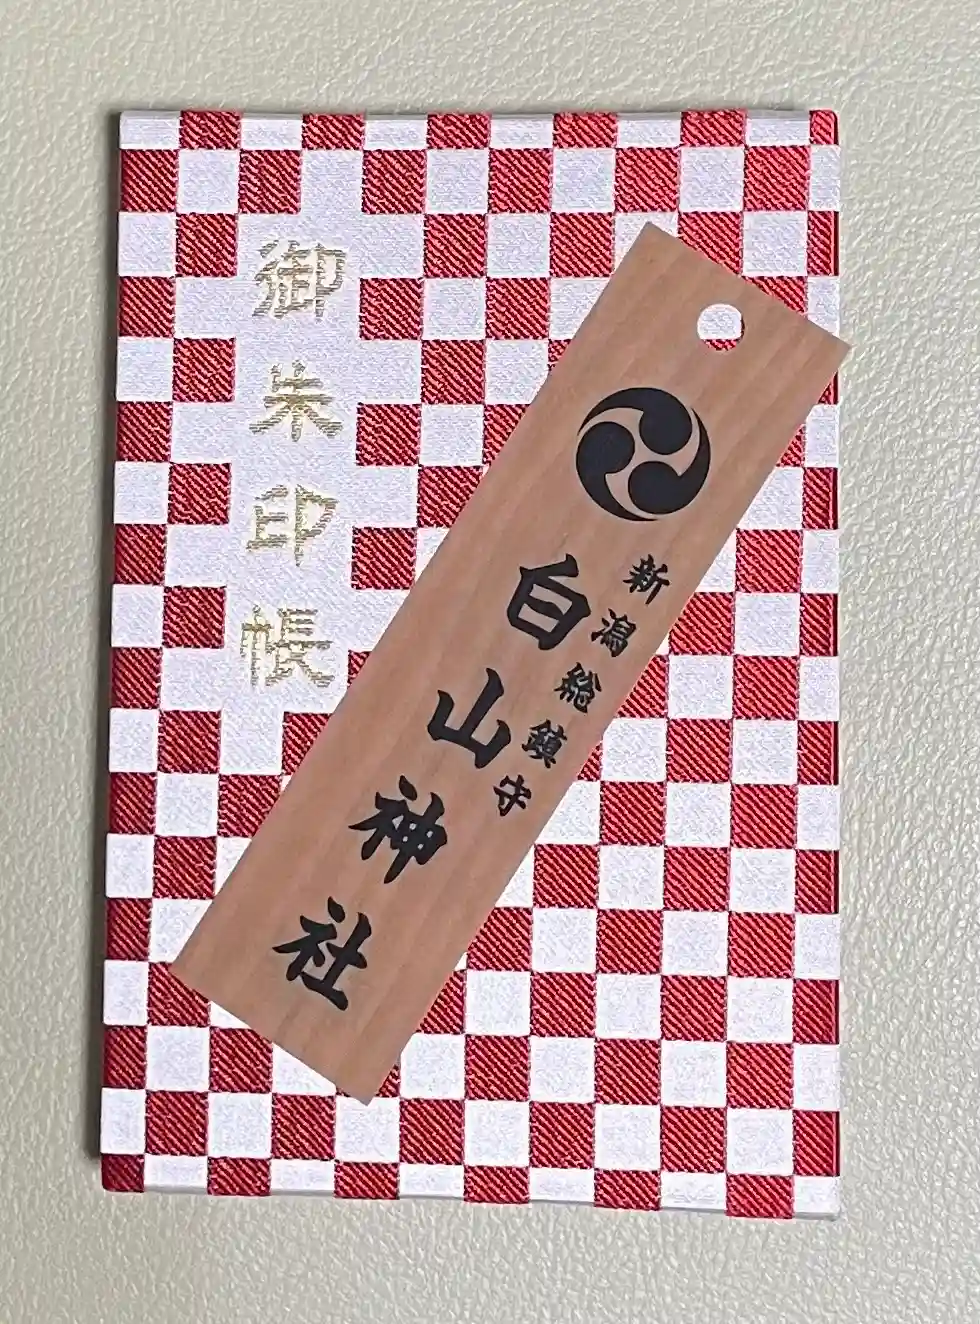 御朱印帳
新潟総鎮守
白山神社